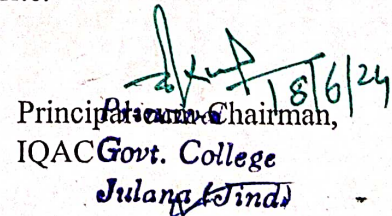 18/6/24
Principal-cum-Chairman,
Principal
IQAC Govt. College
Julana (Jind)